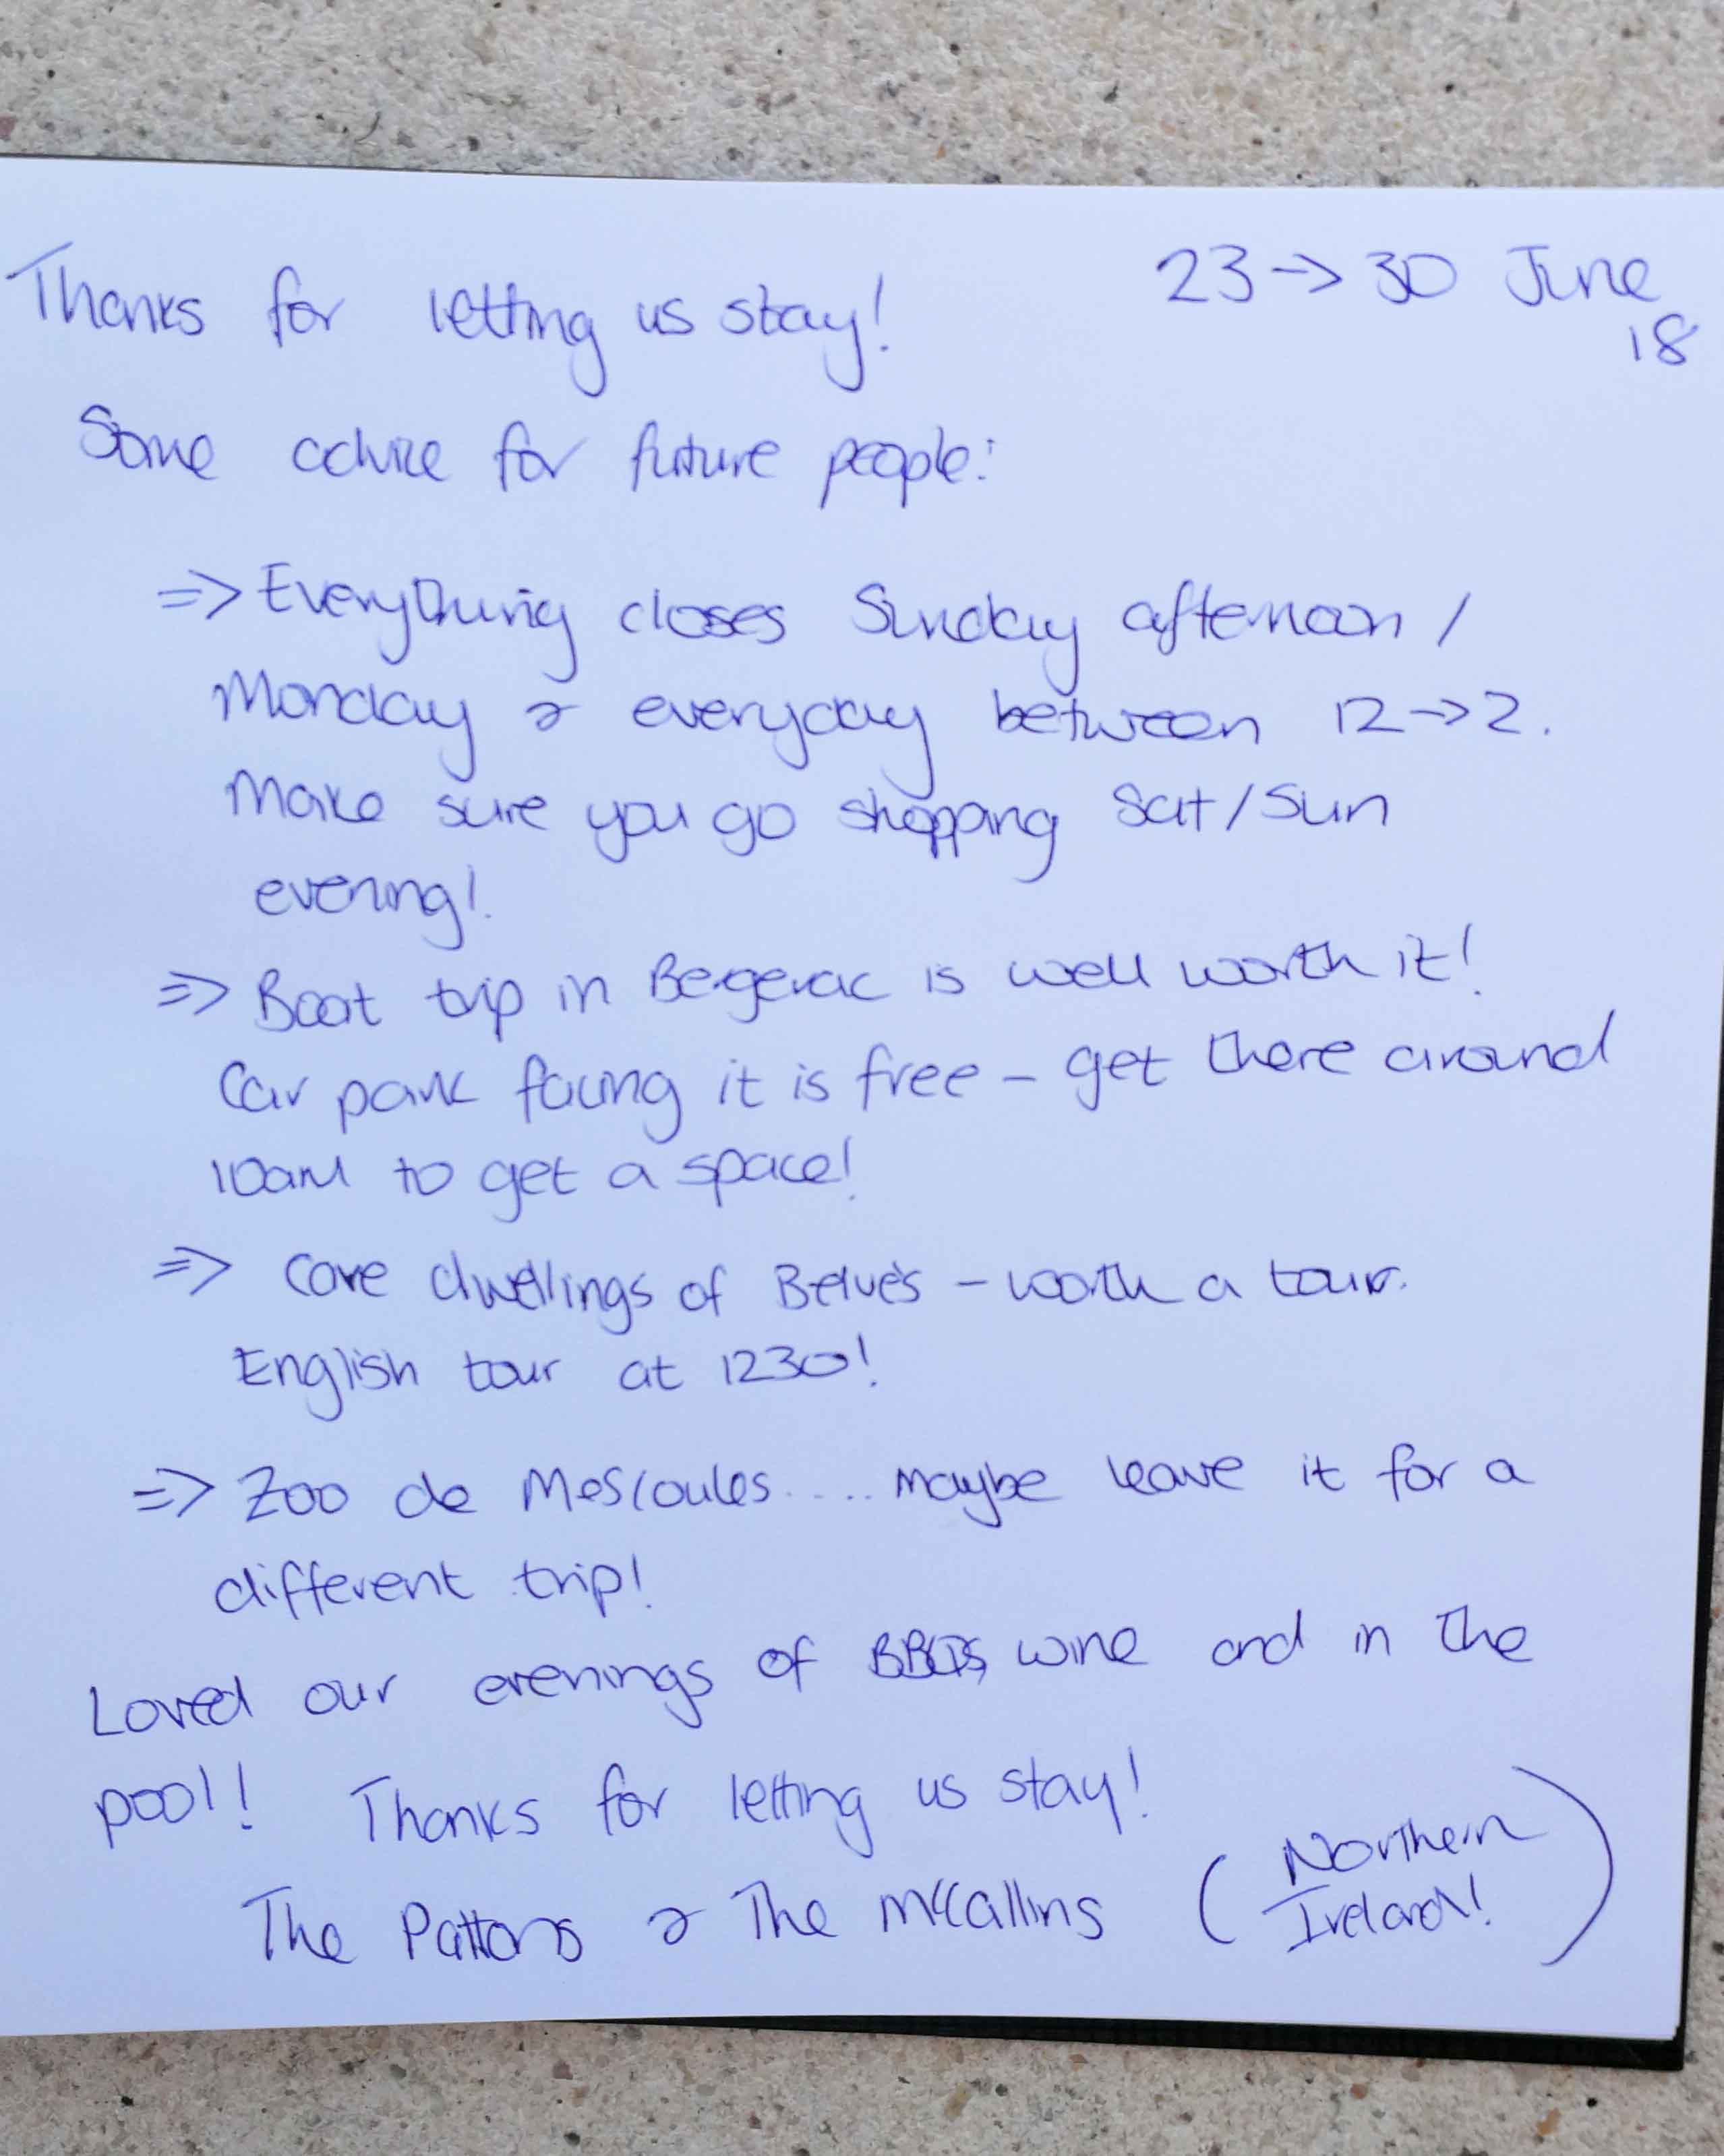 23 → 30 June
18
Thanks for letting us stay!
Some advice for future people:
⇒ Everything closes Sunday afternoon /
Monday & everyday between 12→2.
Make sure you go shopping Sat/Sun
evening!
⇒ Boat trip in Bergerac is well worth it!
Car park facing it is free – get there around
10am to get a space!
⇒ Cave dwellings of Belvés – worth a tour.
English tour at 1230!
⇒ Zoo de Mescoules.... maybe leave it for a
different trip!
Loved our evenings of BBQs, wine and in the
pool! Thanks for letting us stay!
The Pattons & The McCallins (Northern
Ireland!)